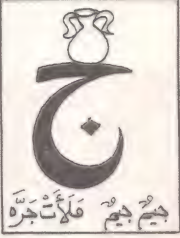 ج
جيمٌ جيمٌ مَلَأَتْ جَرَّه